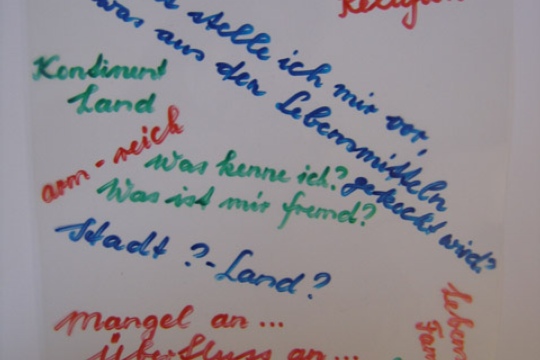 Religion
stelle ich mir vor,
was aus den Lebensmitteln
gekocht wird?
Kontinent
Land
arm - reich
Was kenne ich?
Was ist mir fremd?
Stadt ?-Land?
mangel an ...
überfluss an ...